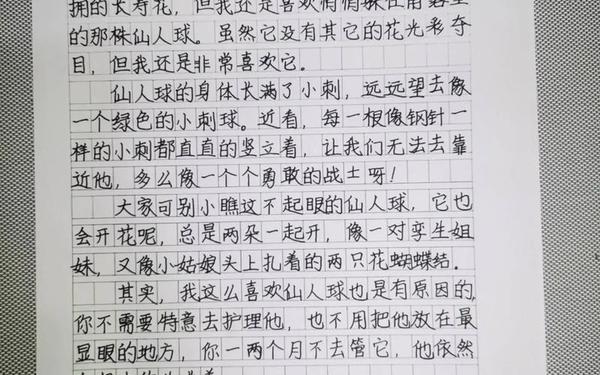 拥的长寿花，但我还是喜欢悄悄躲在角落里
的那株仙人球。虽然它没有其它的花光彩夺
目，但我还是非常喜欢它。
仙人球的身体长满了小刺，远远望去像
一个绿色的小刺球。近看，每一根像钢针一
样的小刺都直直的竖立着，让我们无法去靠
近他，多么像一个个勇敢的战士呀！
大家可别小瞧这不起眼的仙人球，它也
会开花呢，总是两朵一起开，像一对孪生姐
妹，又像小姑娘头上扎着的两只花蝴蝶结。
其实，我这么喜欢仙人球也是有原因的，
你不需要特意去护理他，也不用把他放在最
显眼的地方，你一两个月不去管它，他依然